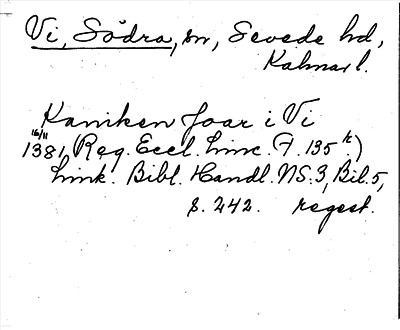 Vi, Södra, sn, Sevede hd,
Kalmar l.
Kaniken Joar i Vi
16/11
1381 (Reg. Eccl. Linc. F. 135 k)
Link. Bibl. Handl. NS. 3, Bil. 5,
s. 242. regest.